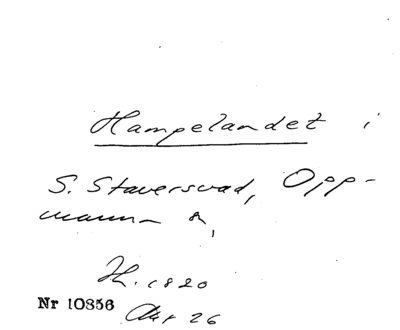 Hampelandet i
S. Staversvad, Opp-
manna
H. 1820
Nr 10856
Akt 26